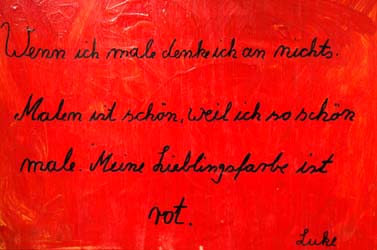 Wenn ich male denke ich an nichts.
Malen ist schön, weil ich so schön
male. Meine Lieblingsfarbe ist
rot.
Luke